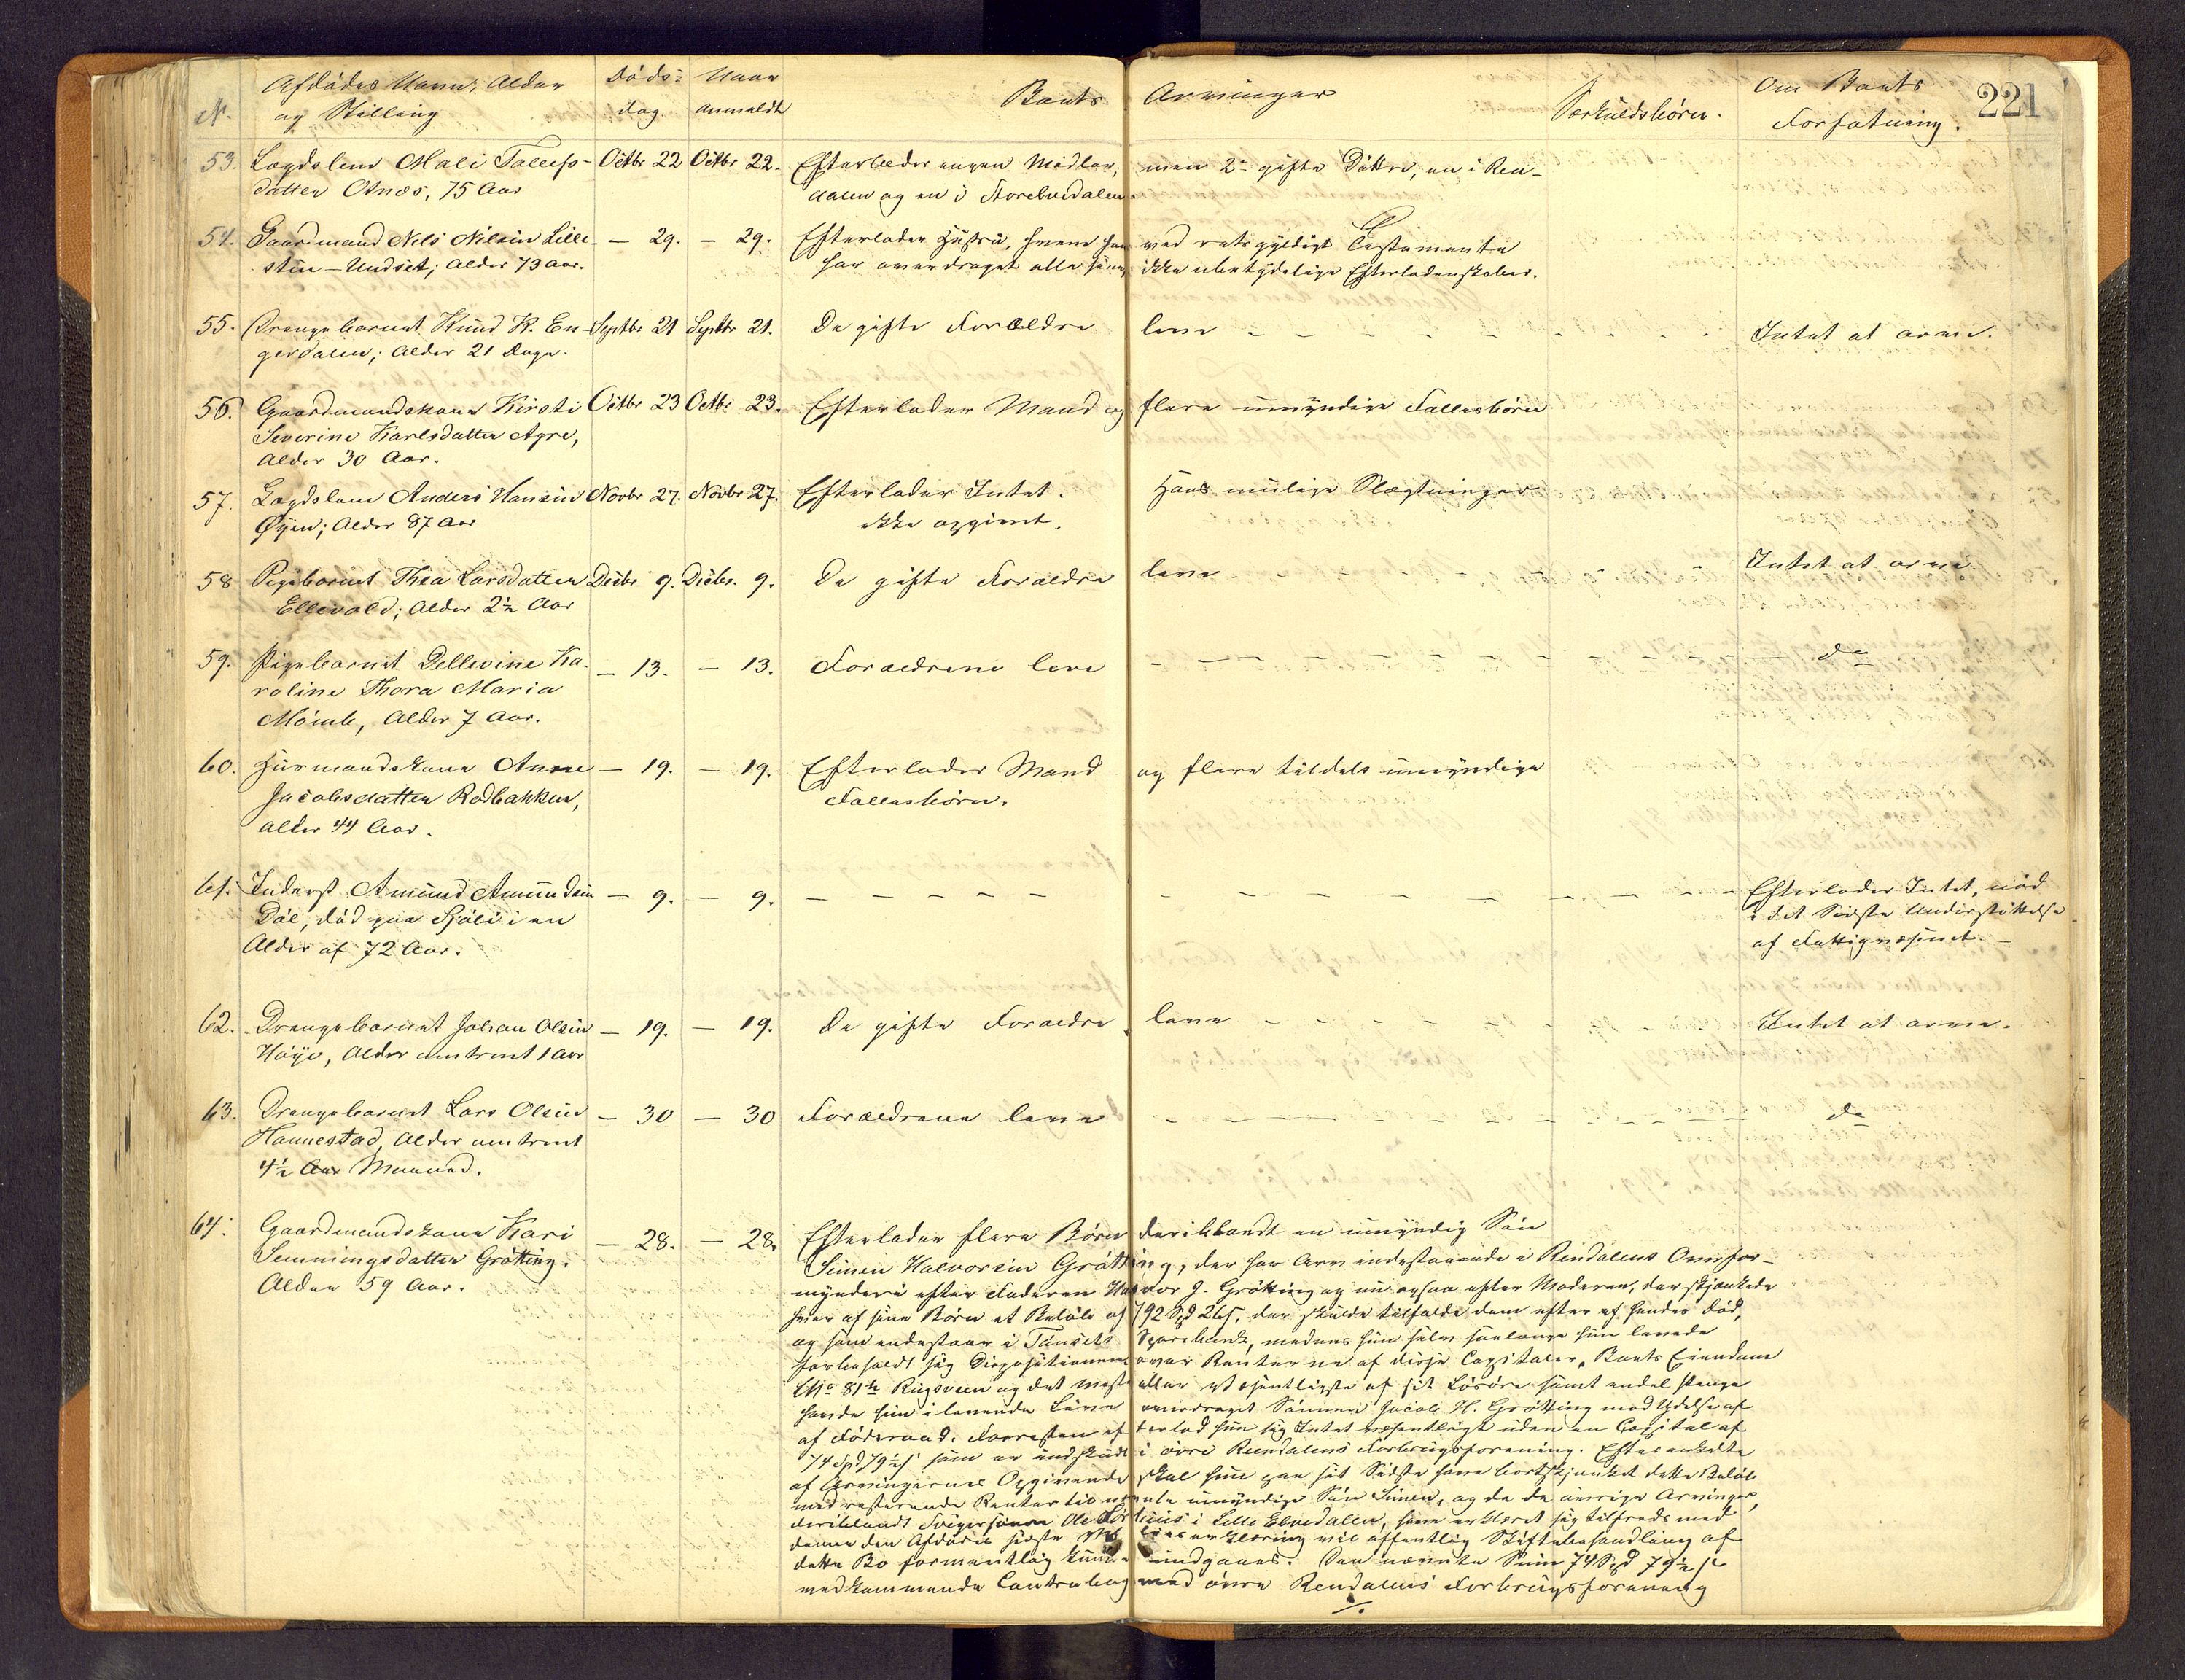 221
N.
Afdødes Navn, Alder
og Stilling
Døds-
dag
Naar
anmeldt
Boets Arvinger
Særkuldsbørn.
Om Boets
Forfatning.
53. Lægdslem Mali Tollefs-
datter Otnæs, 75 Aar
Octbr 22 Octbr 22.
Efterlader ingen Midler; men 2de gifte Døttre, en i Ren-
dalen og en i Storelvedalen.
54. Gaardmand Nils Nilsen Lille-
stuen-Undset; Alder 73 Aar.
— 29. — 29.
Efterlader Hustru, hvem han ved retsgyldigt Testamente
har overdraget alle sine, ikke ubetydelige Efterladenskaber.
55. Drengebarnet Knud K. En-
gerdalen; Alder 21 Dage.
Septbr 21 Septbr 21.
De gifte Forældre leve - - - - - -
Intet at arve.
56. Gaardmandskone Kirsti
Severine Karlsdatter Agre,
Alder 30 Aar.
Octbr 23 Octbr 23.
Efterlader Mand og flere umyndige Fællesbørn
57. Lægdslem Anders Hansen
Øyen; Alder 87 Aar
Novbr 27. Novbr 27.
Efterlader Intet. Hans mulige Slægtninger
ikke opgivet.
58 Pigebarnet Thea Larsdatter
Ellevold; Alder 2½ Aar
Decbr 9. Decbr. 9.
De gifte Forældre leve
Intet at arve.
59. Pigebarnet Dellevine Ka-
roline Thora Maria
Mømb, Alder 7 Aar.
— 13. — 13.
Forældrene leve
do
60. Husmandskone Anne
Jacobsdatter Rødbakken,
Alder 44 Aar.
— 19. — 19.
Efterlader Mand og flere tildels umyndige
Fællesbørn.
61. Inderst Amund Amundsen
Dal, død paa Sjøli i en
Alder af 72 Aar.
— 9. — 9.
Efterlader Intet, nød
i det Sidste Understøttelse
af Fattigvæsenet.
62. Drengebarnet Johan Olsen
Høye, Alder omtrent 1 Aar
— 19. — 19.
De gifte Forældre leve
Intet at arve.
63. Drengebarnet Lars Olsen
Hannestad, Alder omtrent
4½ Aar Maaned.
— 30 — 30
Forældrene leve
do
64. Gaardmandskone Kari
Semmingsdatter Grøtting.
Alder 59 Aar.
— 28. — 28.
Efterlader flere Børn deriblandt en umyndig Søn
Simen Halvorsen Grøtting, der har Arv indestaaende i Rendalens Overfor-
mynderi efter Faderen Halvor J. Grøtting og nu ogsaa efter Moderen, der skjænkede
hver af sine Børn et Beløb af 192 Spd 26 s, der skulde tilfalde dem efter af hendes Død,
og som indestaar i Tønsets Sparebank, medens hun selv saalænge hun levede
forbeholdt sig Dispositionen over Renterne af disse Capitaler. Boets Eiendom
No 81 b Rugsveen og det meste eller væsentligste af sit Løsøre samt endel Penge
havde hun i levende Live overdraget Sønnen Jacob H. Grøtting mod Ydelse af
af Føderaad. Forresten efterlod hun sig Intet væsentligt uden en Capital af
74 Spd 79½ s som er indskudt i øvre Rendalens Forbrugsforening. Efter enkelte
af Arvingernes Opgivende skal hun paa sit Sidste have bortskjænket dette Beløb
med resterende Renter til nævnte umyndige Søn Simen, og da de øvrige Arvinger,
deriblandt Svigersønnen Ole i Lille Elvedalen, have erklæret sig tilfreds med
denne den Afdødes sidste vil offentlig Skiftebehandling af
dette Bo formentlig kunne undgaaes. Den nævnte Sum 74 Spd 79½ s
vedkommende Contrabog med øvre Rendalens Forbrugsforening
./.